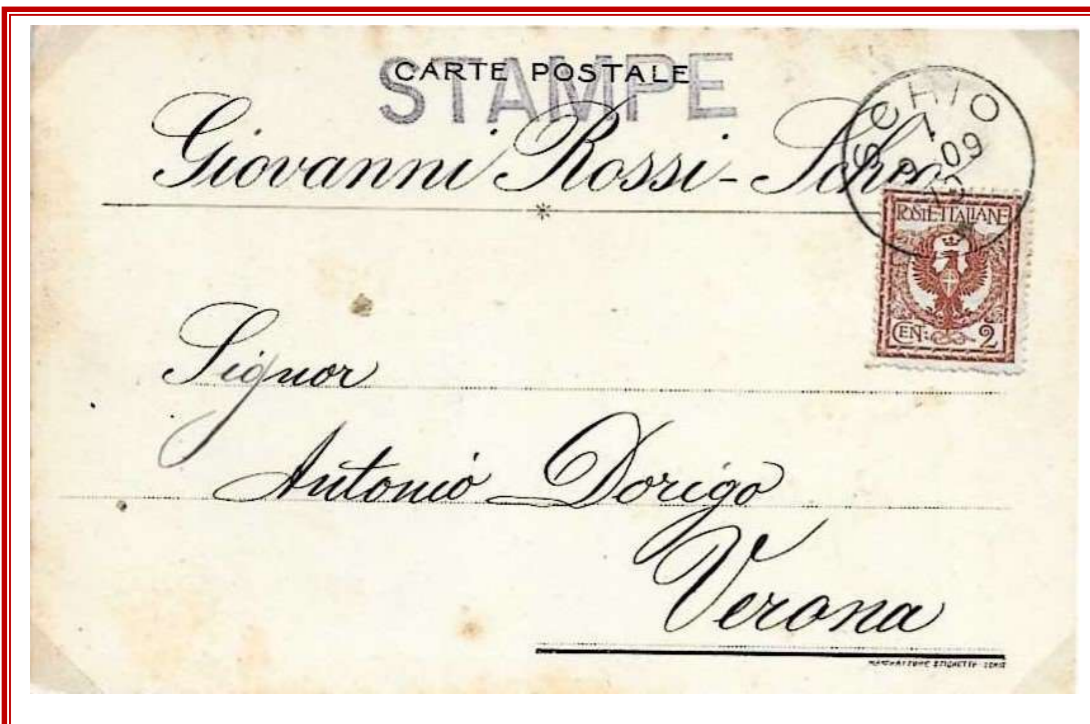 CARTE POSTALE
STAMPE
Giovanni Rossi - Schio
SCHIO
09
POSTE ITALIANE
CEN: 2
Signor
Antonio Dorigo
Verona